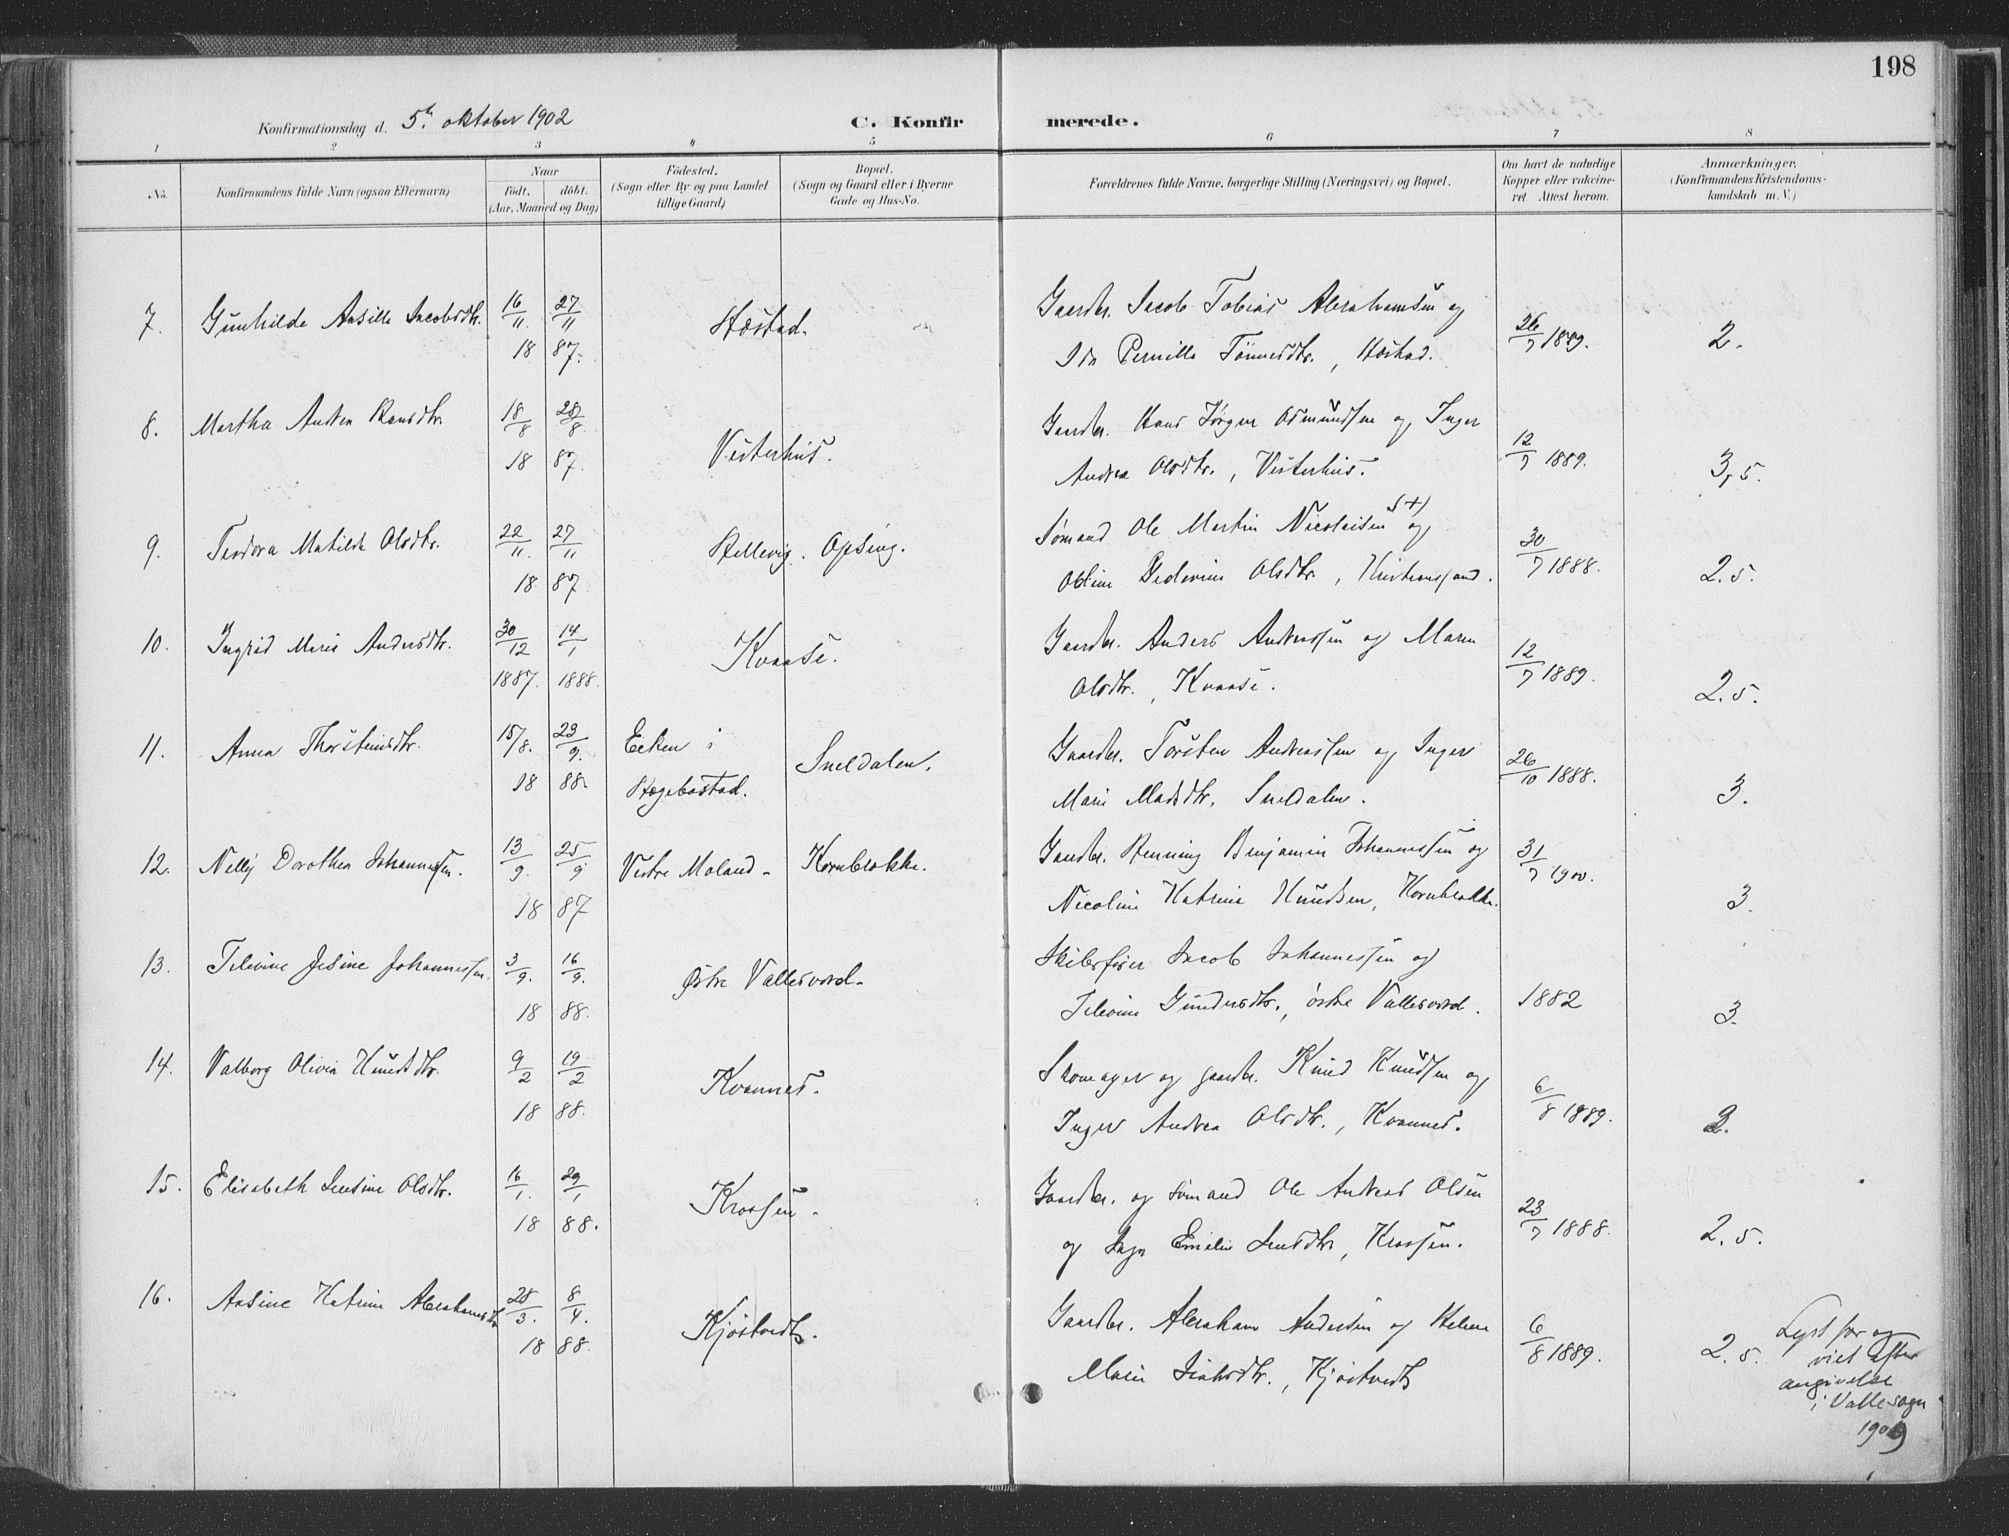 198
Konfirmationsdag d. 5te oktober 1902
C. Konfirmerede.
1 2 3 4 5 6 7 8
No.
Konfirmandens fulde Navn (ogsaa Efternavn)
Naar
født. døbt.
(Aar, Maaned og Dag)
Fødested.
(Sogn eller By og paa Landet
tillige Gaard)
Bopæl.
(Sogn og Gaard eller i Byerne
Gade og Hus-No.
Forældrenes fulde Navne, borgerlige Stilling (Næringsvei) og Bopæl.
Om havt de naturlige
Kopper eller vakcine-
ret Attest herom.
Anmærkninger.
(Konfirmandens Kristendoms-
kundskab m. V.)
7. Gunhilde Aasille Jacobsdtr. 16/11 27/11 Høstad. Gaardbr. Jacob Tobias Abrahamsen og
18 87. Ida Pernille Tønnesdtr., Høstad. 26/7 1889. 2.
8. Martha Andrea Hansdtr. 18/8 28/8 Vesterhus. Gaardbr. Hans Jørgen Osmundsen og Inger
18 87. Andrea Olsdtr., Vesterhus. 12/7 1889. 3,5.
9. Teodora Matilde Olsdtr. 22/11. 27/11 Hellevig. Opsing. Sømand Ole Martin Nicolaisen (+) og
18 87. Oline Olsdtr., Kristianssand. 30/7 1888. 2.5.
10. Ingrid Marie Andersdtr. 30/12 14/1 Kvaase. Gaardbr. Anders Andreassen og Maren
1887. 1888. Olsdtr., Kvaase. 12/7 1889. 2.5.
11. Anna Thorsteinsdtr. 15/8. 23/9. Eeken i Sneldalen. Gaardbr. Torsten Andreassen og Inger
18 88. Hægebostad. Marie Madsdtr. Sneldalen. 26/10 1888. 3.
12. Nelly Dorothea Johannessen. 13/9. 25/9 Vestre Moland - Kornbrokke. Gaardbr. Henning Benjamin Johannessen og
18 87 Nicoline Katrine Knudsen, Kornbrokke. 31/7 1900. 3.
13. Televine Jesine Johannessen. 3/9. 16/9. Østre Vallesverd. Skibsfører Jacob Johannessen og
18 88. Televine Gundersdtr., østre Vallesverd. 1882 3.
14. Valborg Olivia Knudsdtr. 9/2 19/2 Kvannes. Skomager og gaardbr. Knud Knudsen og
18 88. Inger Andrea Olsdtr., Kvannes. 6/8 1889. 2.
15. Elisabeth Jensine Olsdtr. 16/1. 29/1 Krossen. Gaardbr. og sømand Ole Andreas Olsen
18 88. og Inga Emilie Jensdtr., Krossen. 23/7 1888. 2.5.
16. Aasine Katrine Abrahamsdtr. 28/3. 8/4. Kjøstvedt. Gaardbr. Abraham Andersen og Helene
18 88. Marie Isaksdtr., Kjøstvedt 6/8 1889. 2.5. Lyst for og
viet efter
angivelse
i Valle sogn
1909